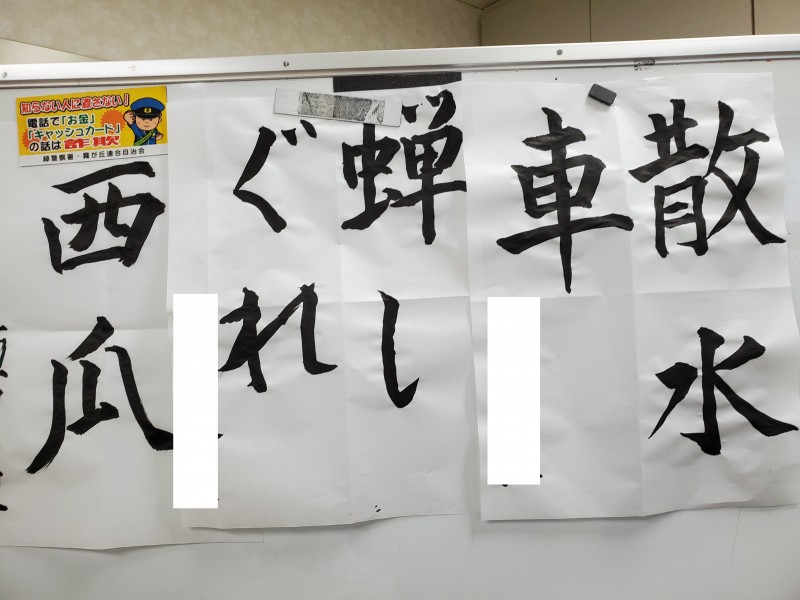 散水
車
蝉し
ぐれ
西瓜
知らない人に渡さない!
電話で「お金」
「キャッシュカード」
の話は詐欺
緑警察署・霧が丘連合自治会